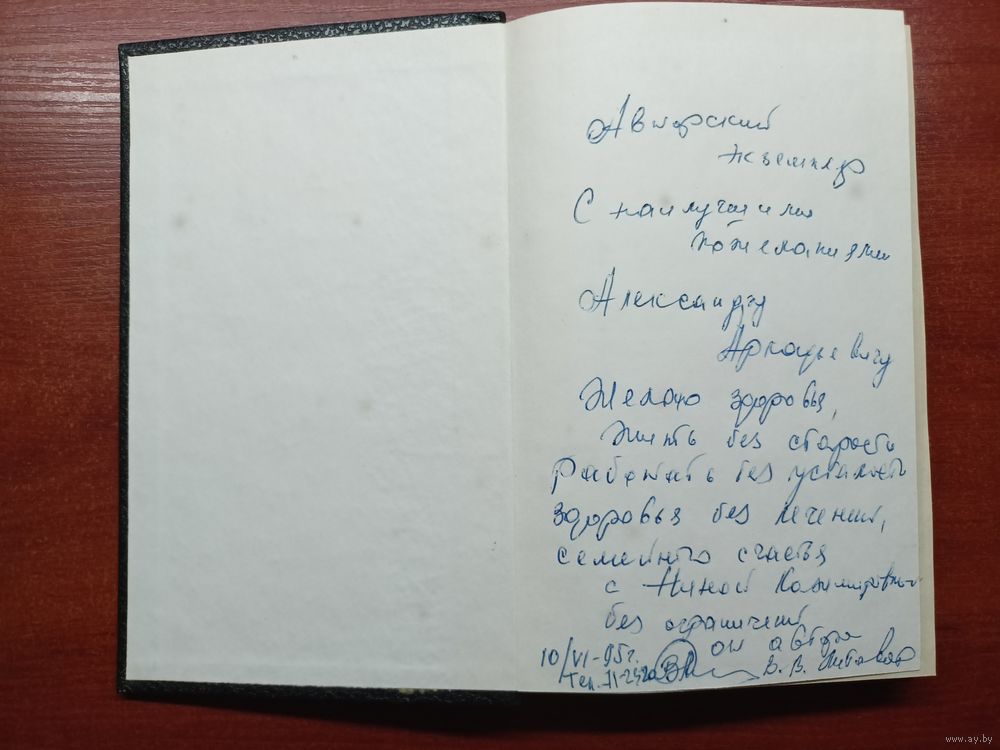 Авторский
экземпляр
С наилучшими
пожеланиями
Александру
Аркадьевичу
Желаю здоровья,
жить без старости
Работать без усталости
здоровья без лечений,
семейного счастья
с Ниной Казимировной
без ограничений
от автора
10/VI-95г.
В. В.
Тел.
www.ay.by